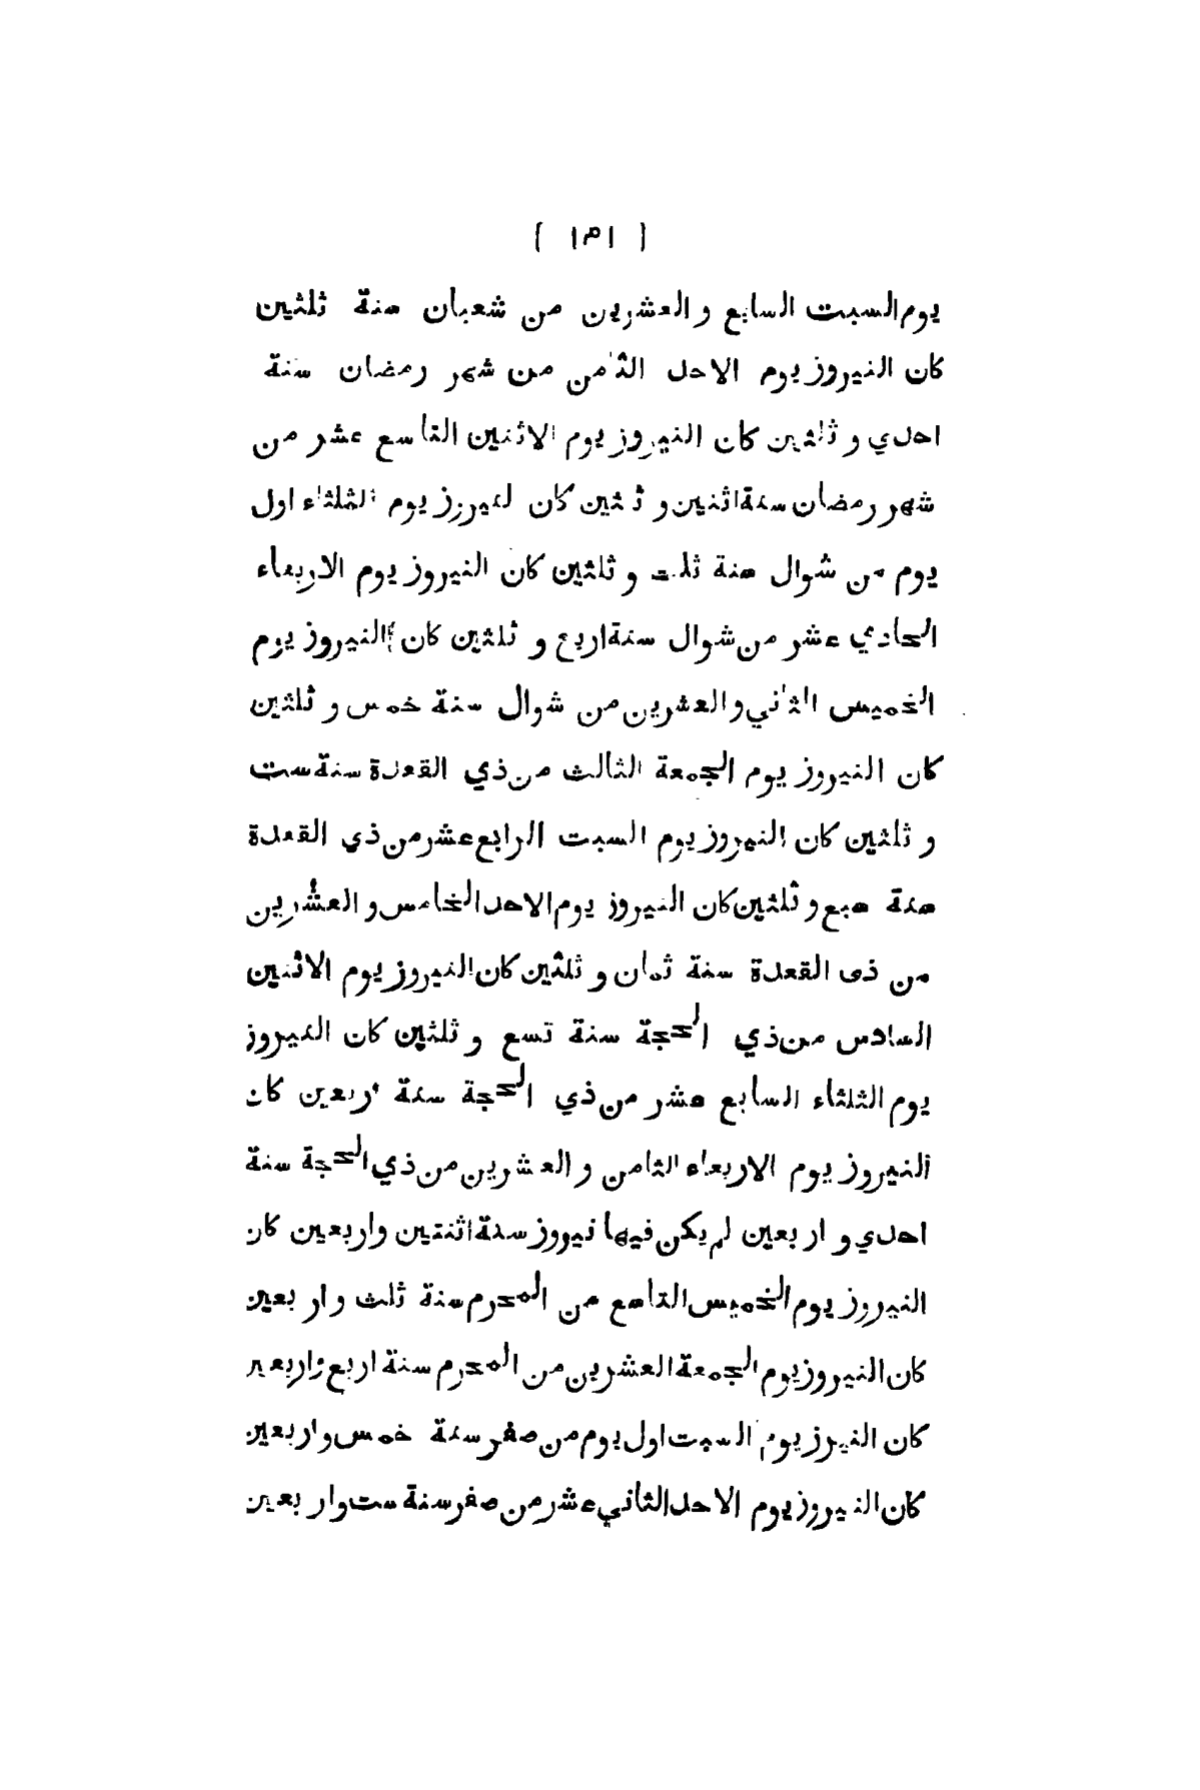 ( ١٣١ )
يوم السبت السابع و العشرين من شعبان سنة ثلثين
كان النيروز يوم الاحد الثامن من شهر رمضان سنة
احدي و ثلثين كان النيروز يوم الاثنين التاسع عشر من
شهر رمضان سنة اثنين و ثلثين كان النيروز يوم الثلثاء اول
يوم من شوال سنة ثلث و ثلثين كان النيروز يوم الاربعاء
الحادي عشر من شوال سنة اربع و ثلثين كان النيروز يوم
الخميس الثاني و العشرين من شوال سنة خمس و ثلثين
كان النيروز يوم الجمعة الثالث من ذي القعدة سنة ست
و ثلثين كان النيروز يوم السبت الرابع عشر من ذي القعدة
سنة سبع و ثلثين كان النيروز يوم الاحد الخامس و العشرين
من ذى القعدة سنة ثمان و ثلثين كان النيروز يوم الاثنين
السادس من ذي الحجة سنة تسع و ثلثين كان النيروز
يوم الثلثاء السابع عشر من ذي الحجة سنة اربعين كان
النيروز يوم الاربعاء الثامن و العشرين من ذي الحجة سنة
احدي و اربعين لم يكن فيها نيروز سنة اثنتين واربعين كان
النيروز يوم الخميس التاسع من المحرم سنة ثلث واربعين
كان النيروز يوم الجمعة العشرين من المحرم سنة اربع واربعين
كان النيرز يوم السبت اول يوم من صفر سنة خمس واربعين
كان النيروز يوم الاحد الثاني عشر من صفر سنة ست واربعين